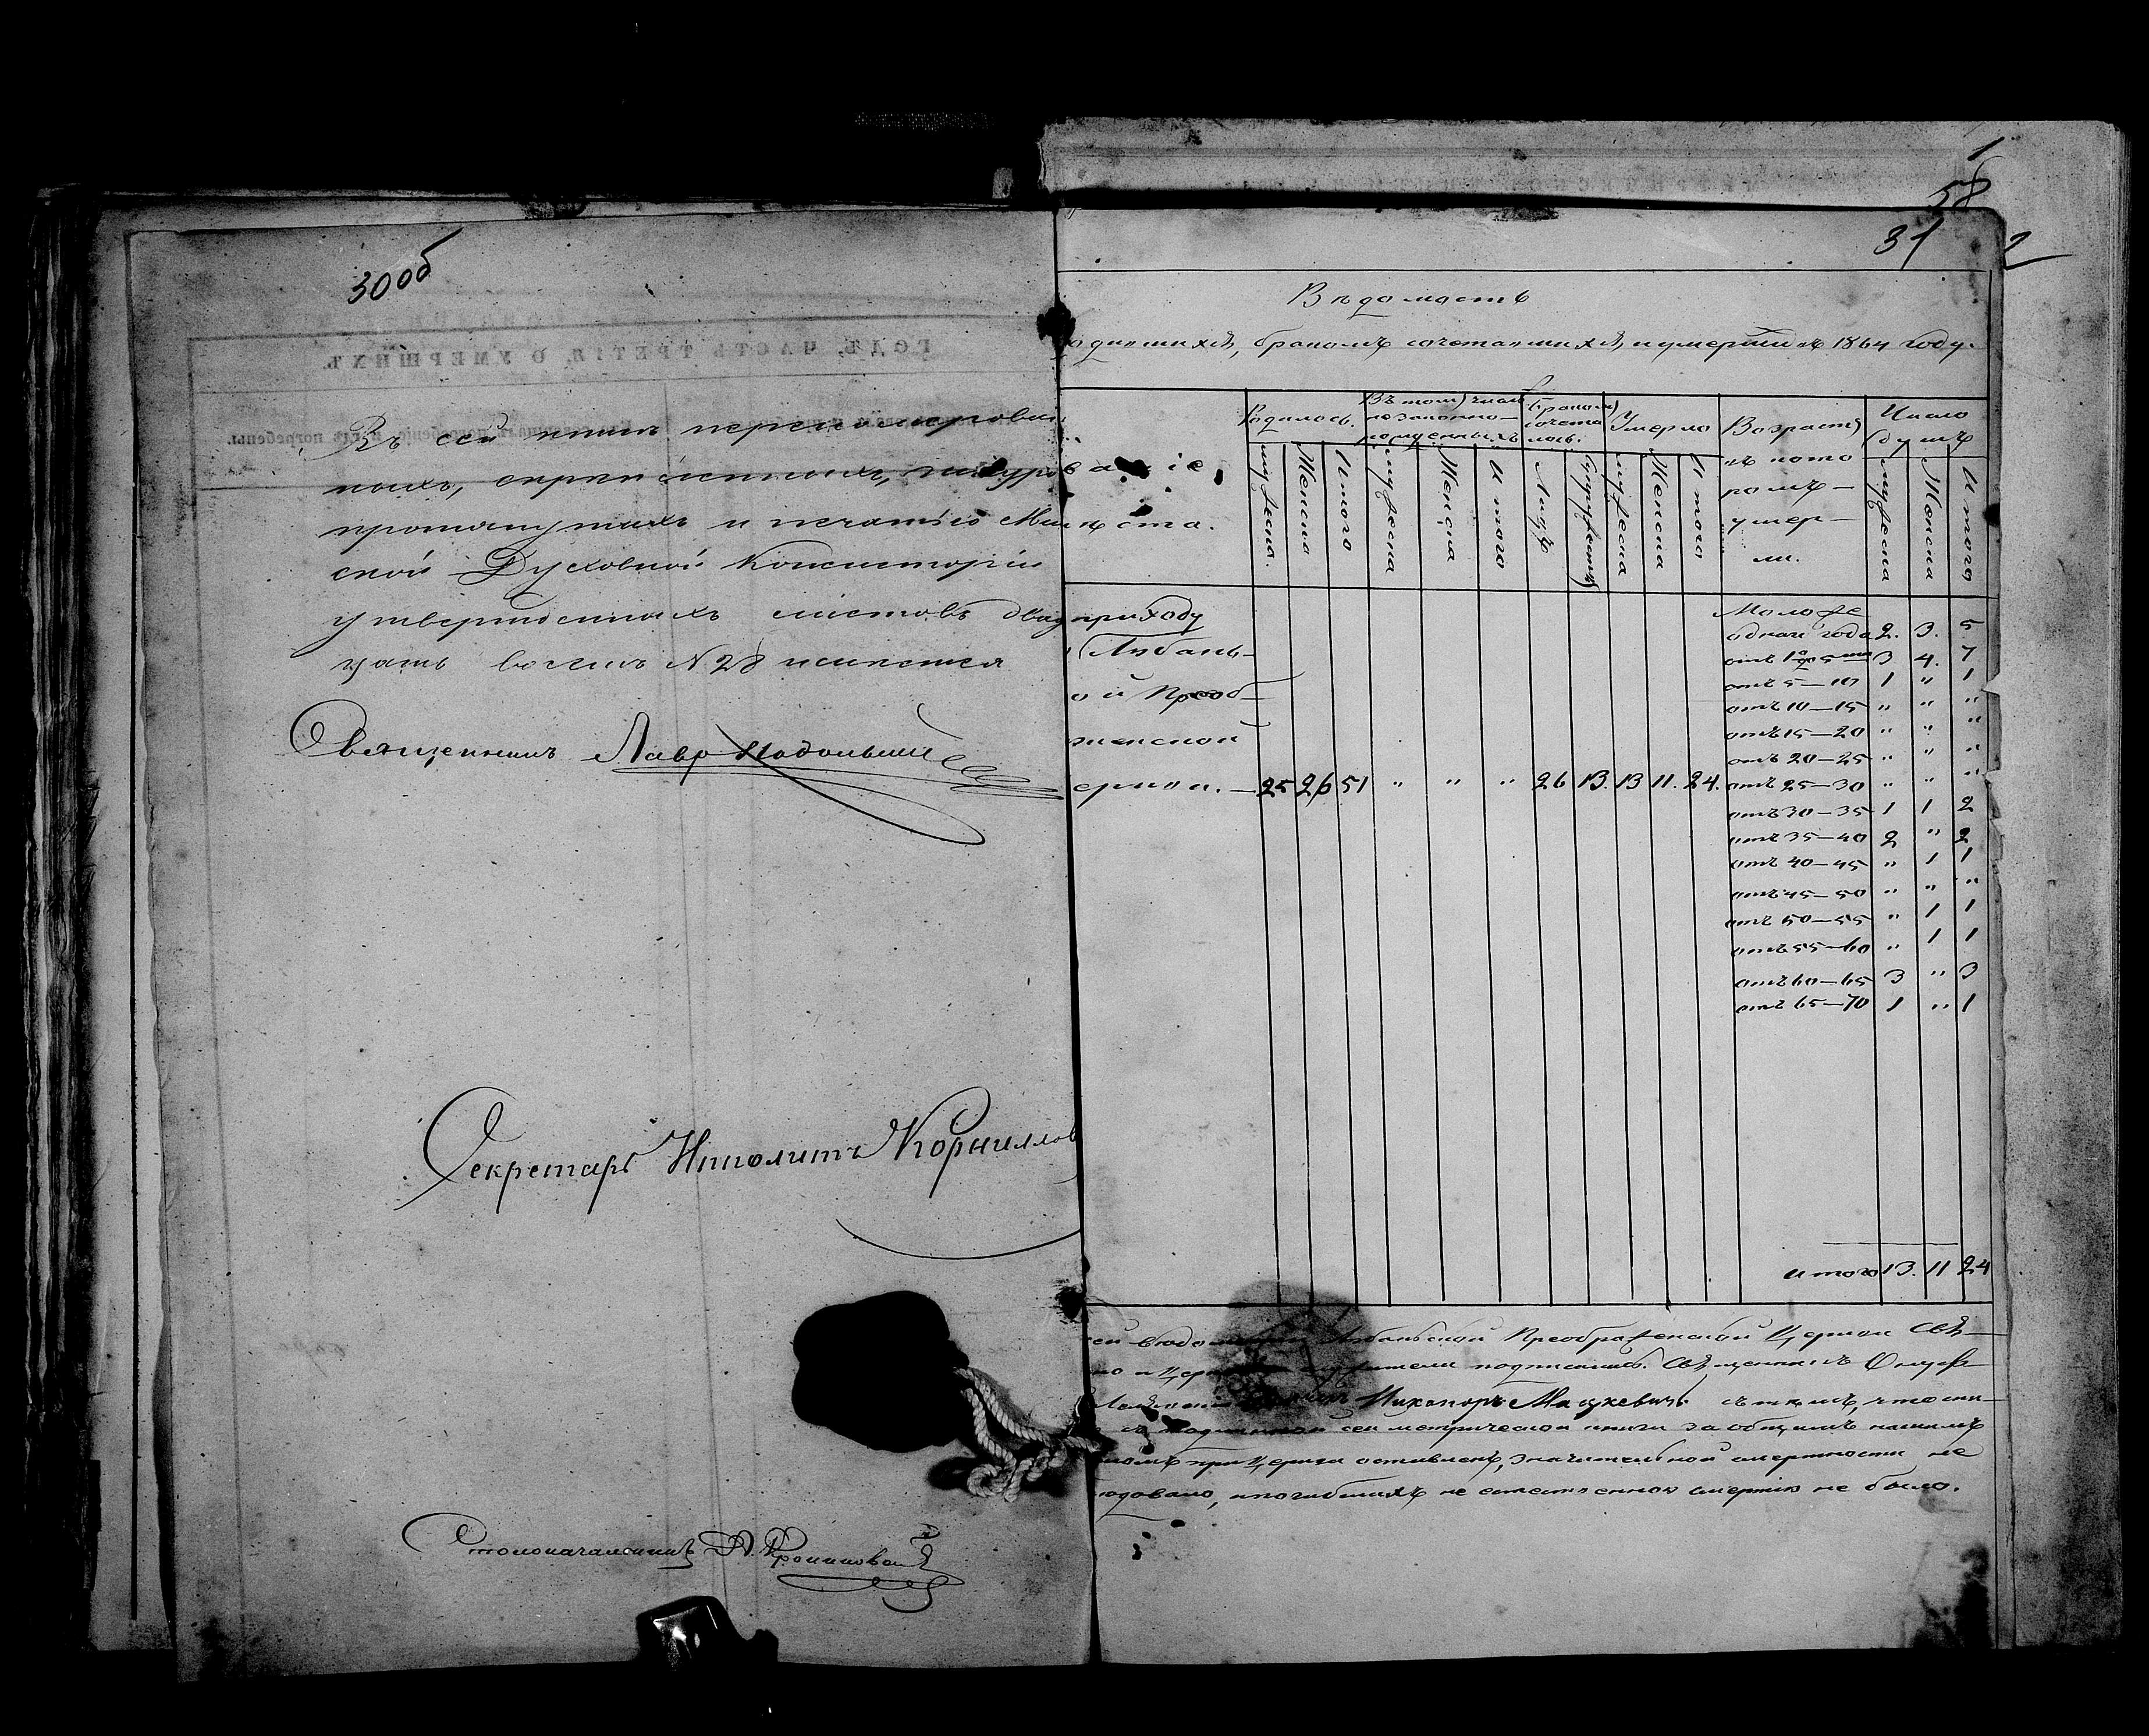 30об
ГОДЪ, ЧАСТЬ ТРЕТІЯ, О УМЕРШИХЪ.
Въ сей книгѣ перенумерован
ныхъ,
протянутыхъ и печатью Мин
ской Духовной Консисторіи
утвержденныхъ листовъ двад
цать восемь № 28 имѣется
Священникъ Лавр Подольскій
Секретарь Ипполитъ Корнилов
Столоначальникъ
1
58
31
2
Вѣдомость
одившихся, бракомъ сочетавшихся, и умершихъ въ 1864 году.
ваніе
мѣста.
Родилось.
Въ томъ числѣ незаконнорожденныхъ
Бракомъ сочеталось.
Умерло
Возрастъ въ которомъ умерли.
Число душъ
Мужеска.
Женска
Итого
Мужеска
Женска
Итого
Лицъ
Супружествъ
Мужеска
Женска
Итого
Мужеска
Женска
Итого
приходу
Любань-
ой Преоб-
женской
еркви. — 25 26 51 " " " 26 13. 13 11. 24.
Моложе
одного года 2. 3. 5
отъ 1го до 5ти 3 4. 7
отъ 5—10 1 " 1
отъ 10—15 " " "
отъ 15—20 " " "
отъ 20—25 " " "
отъ 25—30 " " "
отъ 30—35 1 1 2
отъ 35—40 2 " 2
отъ 40—45 " 1 1
отъ 45—50 " " "
отъ 50—55 " 1 1
отъ 55—60 " 1 1
отъ 60—65 3 " 3
отъ 65—70 1 " 1
Итого 13. 11 24
Любаньской Преображенской Церкви Свя-
но и Церковно служители подписались. Священникъ Онуф-
Никаноръ Мацкевичъ съ тѣмъ, что
съ подлинной сей метрической книги за общимъ нашимъ
при Церкви оставленъ, значительной смертности не
довало, и погибшихъ не естественною смертію не было.